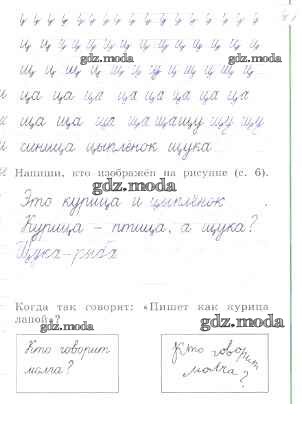 ц ц ц ц ц ц ц ц ц ц ц ц ц ц
gdz.moda
ц ц ц ц ц ц ц ц ц ц ц ц ц
gdz.moda
щ щ щ щ щ щ щ щ щ щ щ
gdz.moda
ца ца ца ца ца ца ца ца
gdz.moda
ща ща ща ща щащу щу щу
синица цыплёнок щука
gdz.moda
Напиши, кто изображён на рисунке (с. 6).
gdz.moda
Это курица и цыплёнок .
Курица – птица, а щука?
gdz.moda
Щука – рыба
Когда так говорят: «Пишет как курица
лапой»?
gdz.moda
gdz.moda
Кто говорит
молча?
Кто говорит
молча?
gdz.moda